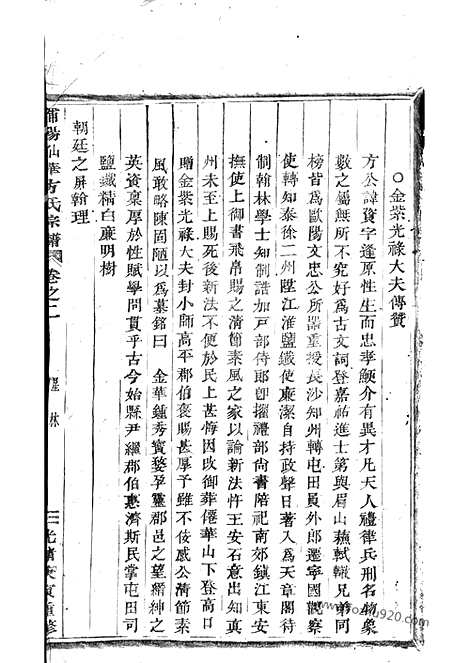 ○金紫光祿大夫傳贊
方公諱資字逢原性生而忠孝鯁介有異才凡天人禮律兵刑名物象
數之屬無所不究好爲古文詞登嘉祐進士第與眉山蘇軾轍兄弟同
榜皆爲歐陽文忠公所器重授長沙知州轉屯田員外郎遷寧國觀察
使轉知泰徐二州陞江淮鹽鐵使廉潔自持政聲日著入爲天章閣待
制翰林學士知制誥加戸部侍郎卽擢禮部尚書陪祀南郊鎮江東安
撫使上御書飛帛賜之清節素風之家以諭新法忤王安石意出知眞
州未至上賜死後新法不便於民上甚悔因改御葬僊華山下登高口
贈金紫光祿大夫封小師高平郡伯褒賜甚厚予雖不佞感公清節素
風敢略陳固陋以爲墓銘曰 金華鍾秀寳婺孕靈郡邑之望縉紳之
英資稟厚於性賦學問貫乎古今始縣尹繼郡伯惠濟斯民掌屯田司
鹽鐵精白廉明樹
朝廷之屏翰理
浦陽仙華方氏宗譜
卷之二
光緒
重修